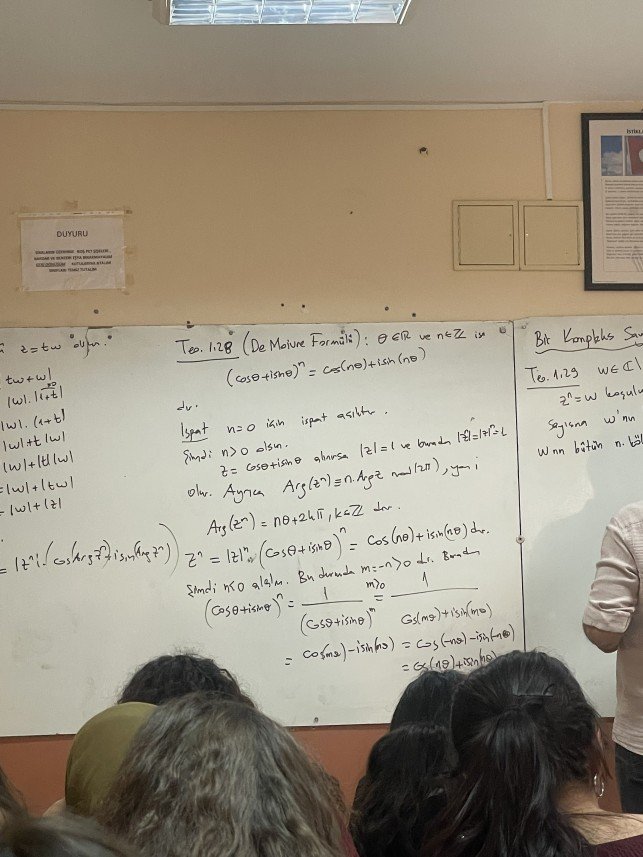 DUYURU
SINIFLARI TEMİZ TUTALIM
İSTİKL
z = tw olsun.
|tw + w|
|w|.|1+t|
|w|.(1+t)
|w| + t|w|
|w| + |t||w|
= |w| + |tw|
= |w| + |z|
= |zⁿ|.(cos(Arg zⁿ) + i sin(Arg zⁿ))
Teo. 1.28 (De Moivre Formülü): θ ∈ ℝ ve n ∈ ℤ ise
(cosθ + isinθ)ⁿ = cos(nθ) + isin(nθ)
dır.
İspat n=0 için ispat açıktır.
Şimdi n>0 olsun.
z = cosθ + isinθ alınırsa |z| = 1 ve burada |zⁿ| = |z|ⁿ = 1
olur. Ayrıca Arg(zⁿ) ≡ n.Arg z mod(2π), yani
Arg(zⁿ) = nθ + 2kπ, k ∈ ℤ dır.
zⁿ = |z|ⁿ.(cosθ + isinθ)ⁿ = cos(nθ) + isin(nθ) dır.
Şimdi n<0 alalım. Bu durumda m = -n > 0 dır. Buradan
(cosθ + isinθ)ⁿ = 1/(cosθ + isinθ)ᵐ = (m>0) 1/(cos(mθ) + isin(mθ))
= cos(mθ) - isin(mθ) = cos(-nθ) - isin(-nθ)
= cos(nθ) + isin(nθ)
Bir Kompleks Say
Teo. 1.29 w ∈ ℂ\
zⁿ = w koşulu
sayısına w'nın
w nın bütün n.